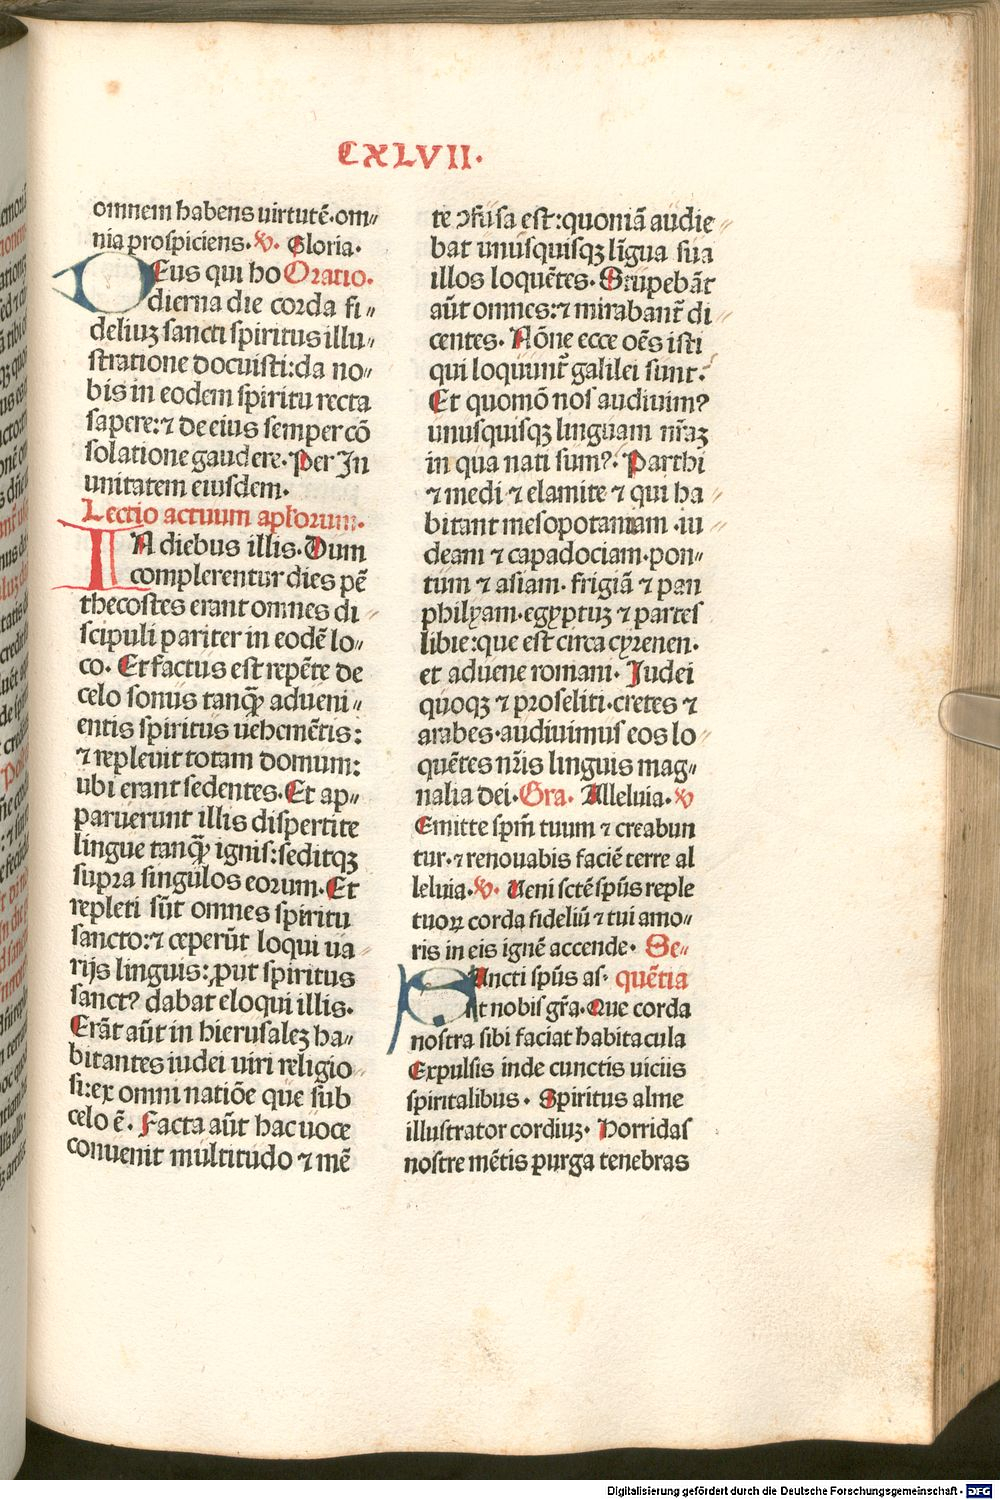 CXLVII.
omnem habens uirtutē.om⸗
nia prospiciens. ℣. Gloria.
DEus qui ho Oratio.
dierna die corda fi⸗
deliuꝫ sancti spiritus illu⸗
stratione docuisti:da no⸗
bis in eodem spiritu recta
sapere:⁊ de eius semper cō
solatione gaudere.Per In
unitatem eiusdem.
Lectio actuum apl'orum.
IN diebus illis.Dum
complerentur dies pē
thecostes erant omnes di⸗
scipuli pariter in eodē lo⸗
co. Et factus est repēte de
celo sonus tanqꝫ adueni⸗
entis spiritus uehemētis:
⁊ repleuit totam domum:
ubi erant sedentes.Et ap⸗
paruerunt illis dispertite
lingue tanqꝫ ignis:seditqꝫ
supra singulos eorum.Et
repleti sūt omnes spiritu
sancto:⁊ ceperūt loqui ua⸗
rijs linguis:ꝓut spiritus
sanctꝰ dabat eloqui illis.
Erāt aūt in hierusaleꝫ ha⸗
bitantes iudei uiri religio⸗
si:ex omni natiōe que sub
celo ē. Facta aūt hac uoce
conuenit multitudo ⁊ mē
te ↄfusa est:quoniā audie⸗
bat unusquisqꝫ līgua sua
illos loquētes.Stupebāt
aūt omnes:⁊ mirabant̄ di⸗
centes. Nōne ecce oēs isti
qui loquunt̄ galilei sunt.
Et quomō nos audiuimꝰ
unusquisqꝫ linguam nr̄aꝫ
in qua nati sumꝰ. Parthi
⁊ medi ⁊ elamite ⁊ qui ha⸗
bitant mesopotamiam .iu⸗
deam ⁊ capadociam.pon⸗
tum ⁊ asiam. frigiā ⁊ pan
philyam.egyptuꝫ ⁊ partes
libie:que est circa cyrenen.
et aduene romani. Judei
quoqꝫ ⁊ proseliti.cretes ⁊
arabes.audiuimus eos lo⸗
quētes nr̄is linguis mag⸗
nalia dei.Gra. Alleluia.℣
Emitte spm̄ tuum ⁊ creabun
tur.⁊ renouabis faciē terre al
leluia.℣. Ueni sctē spūs reple
tuoꝝ corda fideliū ⁊ tui amo⸗
ris in eis ignē accende. Se⸗
SAncti spūs as. quētia
sit nobis gr̄a.Que corda
nostra sibi faciat habitacula
Expulsis inde cunctis uiciis
spiritalibus. Spiritus alme
illustrator cordiuꝫ. Horridas
nostre mētis purga tenebras
Digitalisierung gefördert durch die Deutsche Forschungsgemeinschaft - DFG